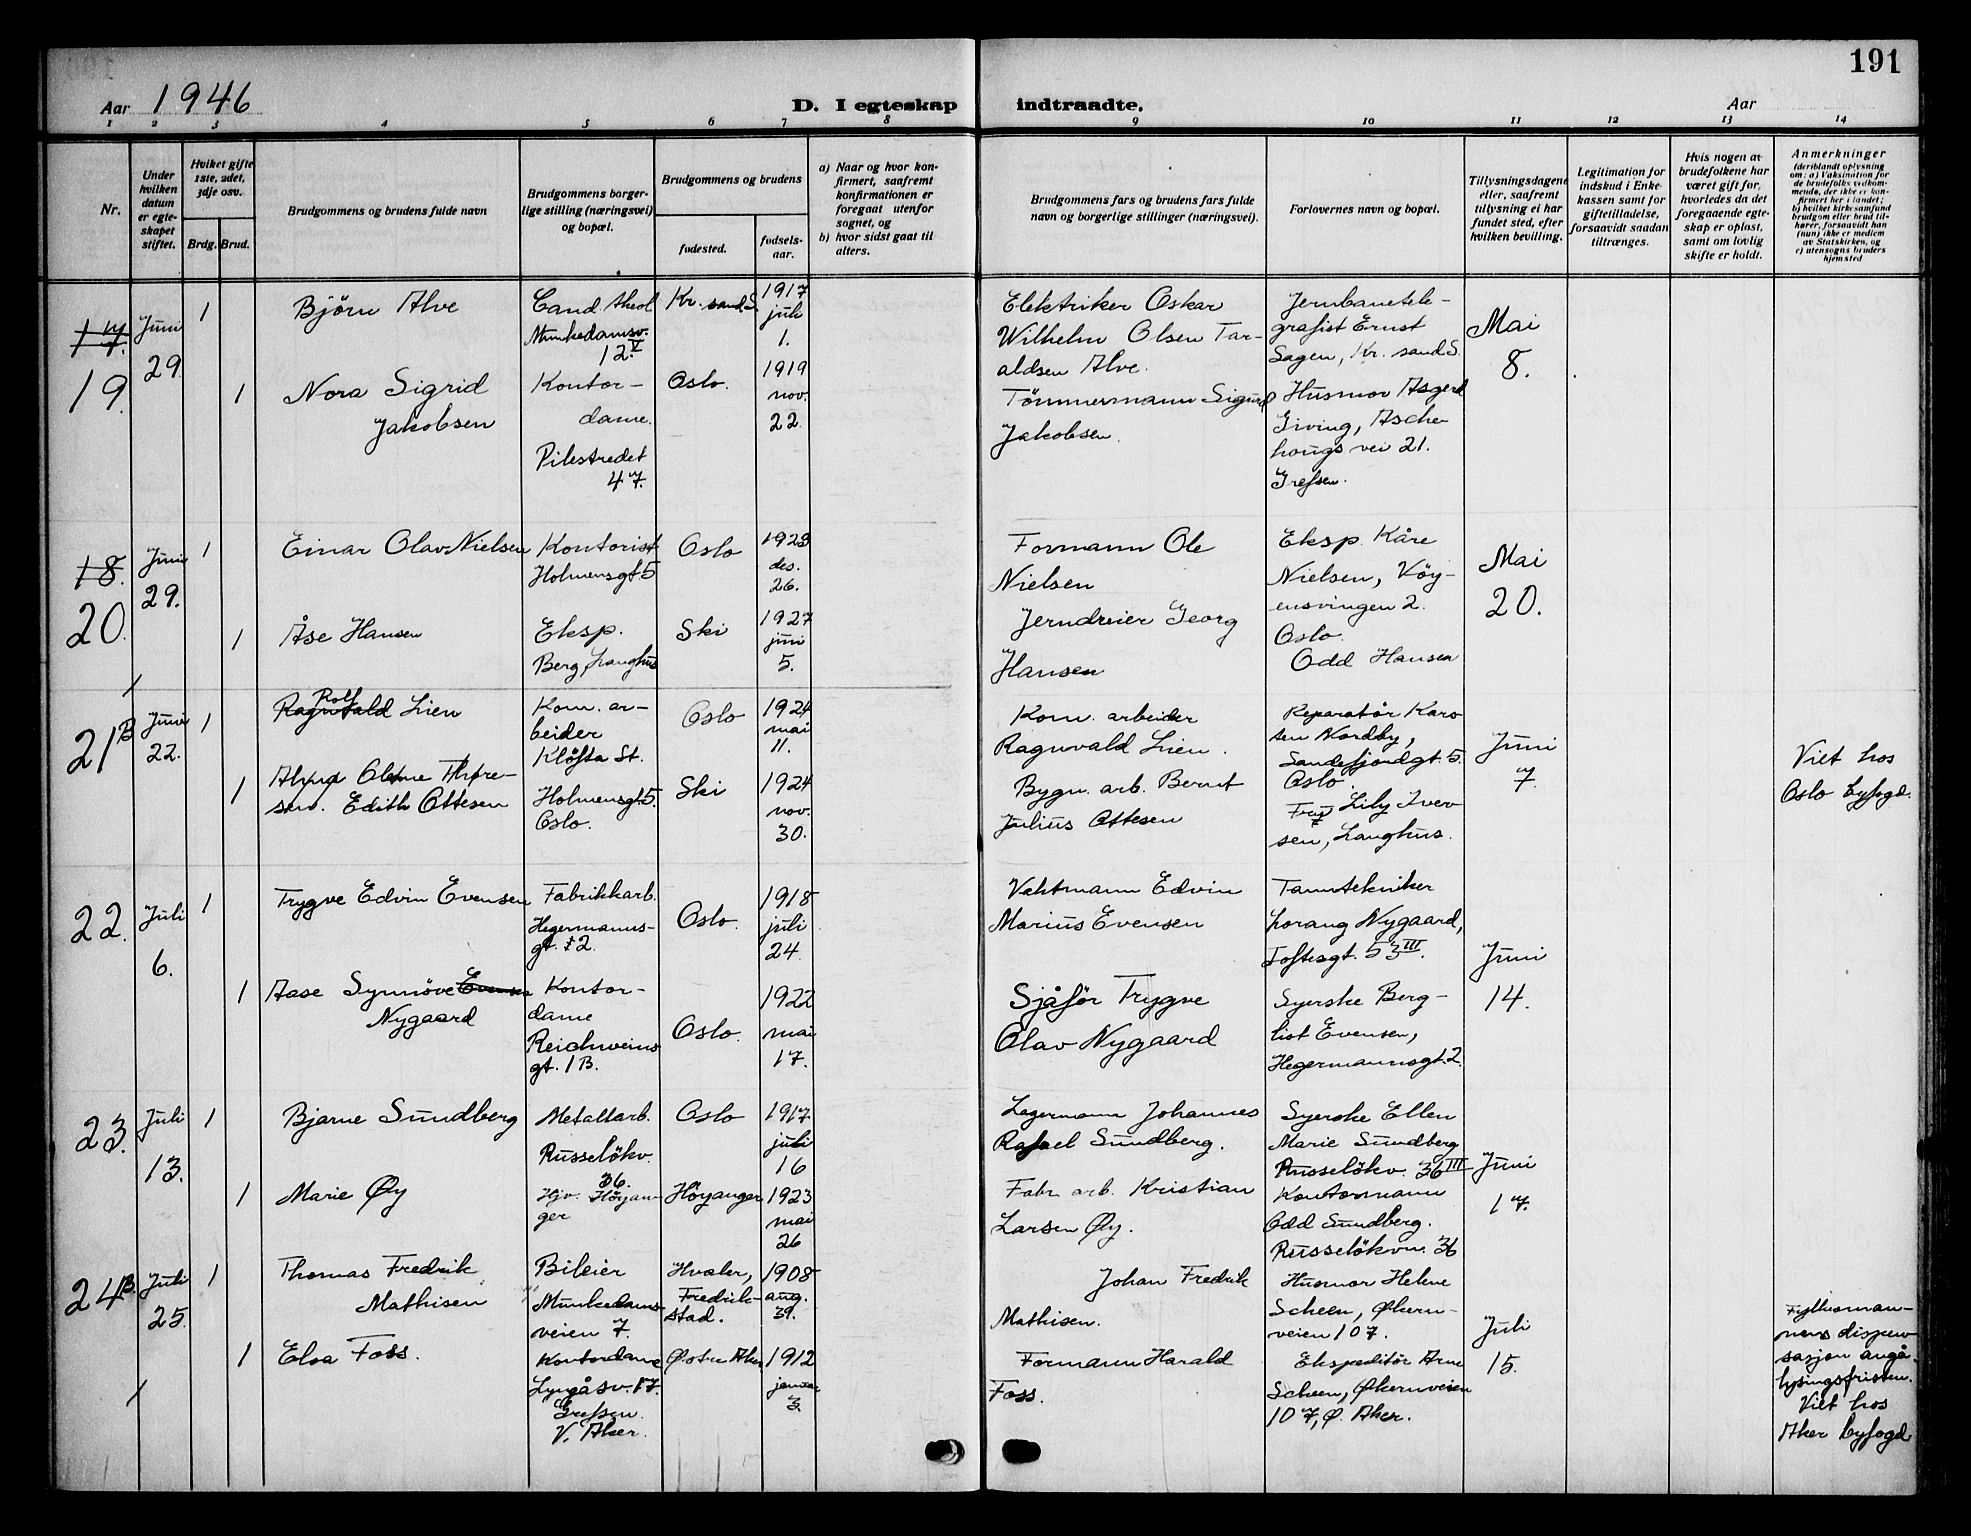 191
Aar 1946
D. I egteskap indtraadte.
Aar
1 2 3 4 5 6 7 8 9 10 11 12 13 14
Nr.
Under hvilken datum er egteskapet stiftet.
Hvilket gifte 1ste, 2det, 3dje osv.
Brdg. Brud.
Brudgommens og brudens fulde navn
Brudgommens borgerlige stilling (næringsvei) og bopæl.
Brudgommens og brudens
fødested.
fødselsaar.
a) Naar og hvor konfirmert, saafremt konfirmationen er foregaat utenfor sognet, og
b) hvor sidst gaat til alters.
Brudgommens fars og brudens fars fulde navn og borgerlige stillinger (næringsvei).
Forlovernes navn og bopæl.
Tillysningsdagene eller, saafremt tillysning ei har fundet sted, efter hvilken bevilling.
Legitimation for indskud i Enkekassen samt for giftetilladelse, forsaavidt saadan tiltrænges.
Hvis nogen av brudefolkene har været gift før, hvorledes da det foregaaende egteskap er opløst, samt om lovlig skifte er holdt.
Anmerkninger
(deriblandt oplysning om: a) Vaksination for de brudefolks vedkommende, der ikke er konfirmert her i landet; b) hvilket kirkesamfund brudgom eller brud tilhører, forsaavidt han (hun) ikke er medlem av Statskirken, og c) utensogns bruders hjemsted
17.
19.
Juni
29
1
Bjørn Alve
Cand. theol
Munkedamsv.
12 V
Kr. sand S.
1917
juli
1.
Elektriker Oskar
Wilhelm Olsen Tar-
aldsen Alve.
Jernbanetele-
grafist Ernst
Sagen, Kr. sand S.
Mai
8.
1
Nora Sigrid
Jakobsen
Kontor-
dame.
Pilestredet
47.
Oslo.
1919
nov.
22.
Tömmermann Sigurd
Jakobsen.
Husmor Asgerd
Giving, Asche-
hougs vei 21.
Grefsen.
18.
20.
Juni
29.
1
Einar Olav Nielsen
Kontorist
Holmensgt 5
Oslo
1923
des.
26.
Formann Ole
Nielsen
Eksp. Kåre
Nielsen, Vöy-
ensvingen 2.
Oslo.
Mai
20.
1
Åse Hansen
Eksp.
Berg, Langhus
Ski
1927
juni
5.
Jerndreier Georg
Hansen
Odd Hansen
21 B
Juni
22.
1
Rolf
Ragnvald Lien
Kom. ar-
beider
Klöfta St.
Oslo
1924
mai
11.
Kom. arbeider
Ragnvald Lien.
Reparatör Karo
sen Nordby,
Sandefjordgt. 5.
Oslo.
Juni
7.
Viet hos
Oslo byfogd.
1
Thore-
sen. Edith Ottesen
Holmensgt 5.
Oslo.
Ski
1924
nov.
30.
Bygn. arb. Bernt
Julius Ottesen
Frøy Lily Iver
sen, Langhus.
22.
Juli
6.
1
Trygve Edvin Evensen
Fabrikkarb.
Hegermanns-
gt. 2.
Oslo.
1918
juli
24.
Vaktmann Edvin
Marius Evensen
Tanntekniker
Lorang Nygaard,
Toftesgt. 53 III.
Juni
14.
1
Aase Synnöve Evensen
Nygaard
Kontor-
dame
Reichweins
gt. 1 B.
Oslo.
1922
mai
17.
Sjåför Trygve
Olav Nygaard
Syerske Berg-
liot Evensen,
Hegermannsgt. 2.
23.
Juli
13.
1
Bjarne Sundberg
Metallarb.
Russelökv.
36.
Oslo
1917.
juli
16
Lagermann Johannes
Rafael Sundberg.
Syerske Ellen
Marie Sundberg
Russelökv. 36 III
Juni
17.
1
Marie Øy
Hjv. Höyan-
ger
Höyanger
1923
mai
26
Fabr. arb. Kristian
Larsen Øy.
Kontormann
Odd Sundberg.
Russelökvn. 36
24 B.
Juli
25.
1
Thomas Fredrik
Mathisen
Bileier
Munkedams-
veien 7.
Hvaler,
Fredrik-
stad.
1908
aug.
39.
Johan Fredrik
Mathisen.
Husmor Helene
Scheen, Økern-
veien 107.
Juli
15.
Fylkesman-
nens dispen-
sasjon angå.
lysingsfristen.
Viet hos
Aker byfogd
1
Elsa Foss.
Kontordame
Lyngåsv. 17.
Grefsen.
V. Aker.
Østre Aker
1912
januar
3.
Formann Harald
Foss.
Ekspeditör Arne
Scheen, Økernveien
107, Ø. Aker.